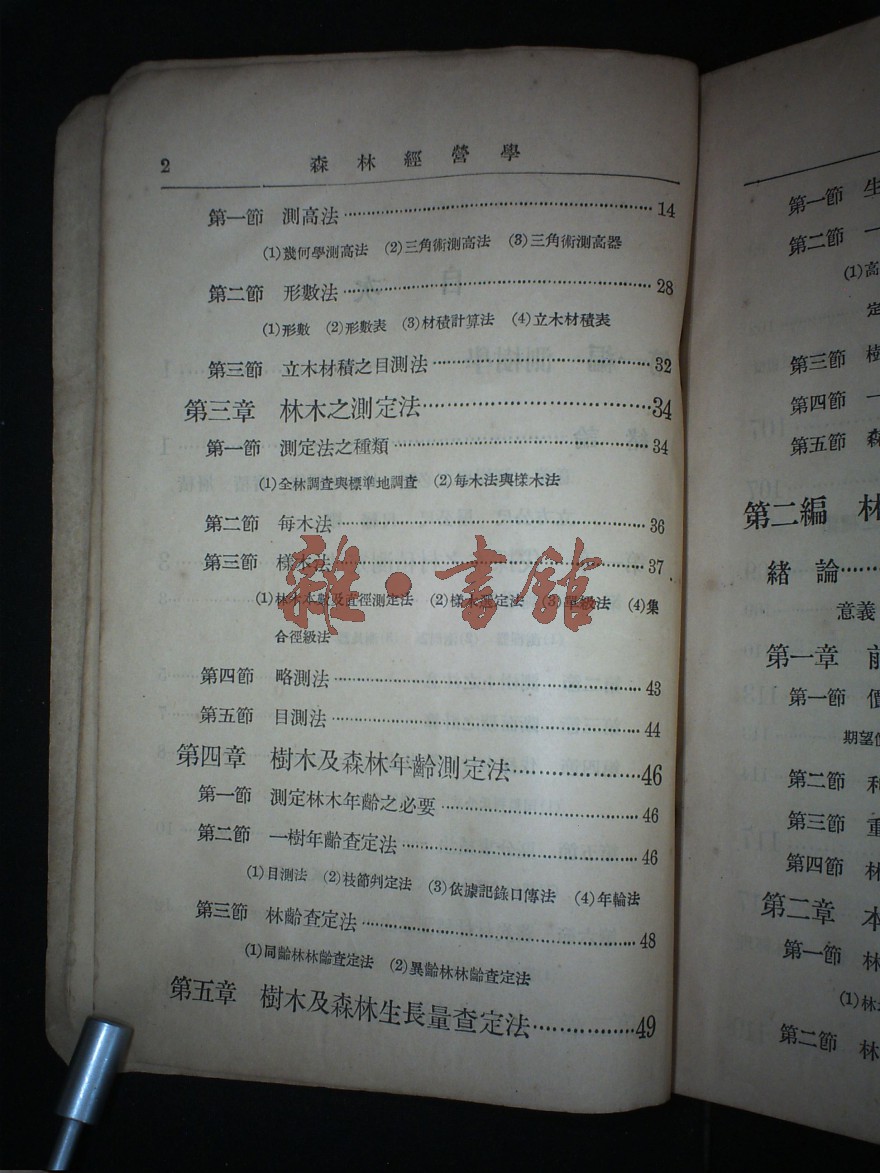 2 森林經營學
第一節 測高法……14
(1)幾何學測高法 (2)三角術測高法 (3)三角術測高器
第二節 形數法……28
(1)形數 (2)形數表 (3)材積計算法 (4)立木材積表
第三節 立木材積之目測法……32
第三章 林木之測定法……34
第一節 測定法之種類……34
(1)全林調查與標準地調查 (2)每木法與樣木法
第二節 每木法……36
第三節 樣木法……37
(1)林木本數及直徑測定法 (2)樣木選定法 (3)單級法 (4)集
合徑級法
第四節 略測法……43
第五節 目測法……44
第四章 樹木及森林年齡測定法……46
第一節 測定林木年齡之必要……46
第二節 一樹年齡查定法……46
(1)目測法 (2)枝節判定法 (3)依據記錄口傳法 (4)年輪法
第三節 林齡查定法……48
(1)同齡林林齡查定法 (2)異齡林林齡查定法
第五章 樹木及森林生長量查定法……49
雜·書館
第一節 生
第二節 一
(1)高
定
第三節 樹
第四節 一
第五節 森
第二編 林
緒論……
意義
第一章 前
第一節 價
期望價
第二節 利
第三節 重
第四節 林
第二章 本
第一節 林
(1)林
第二節 林